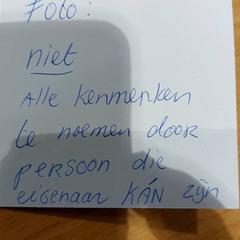 Foto:
niet
Alle kenmerken
te noemen door
persoon die
eigenaar KÁN zijn